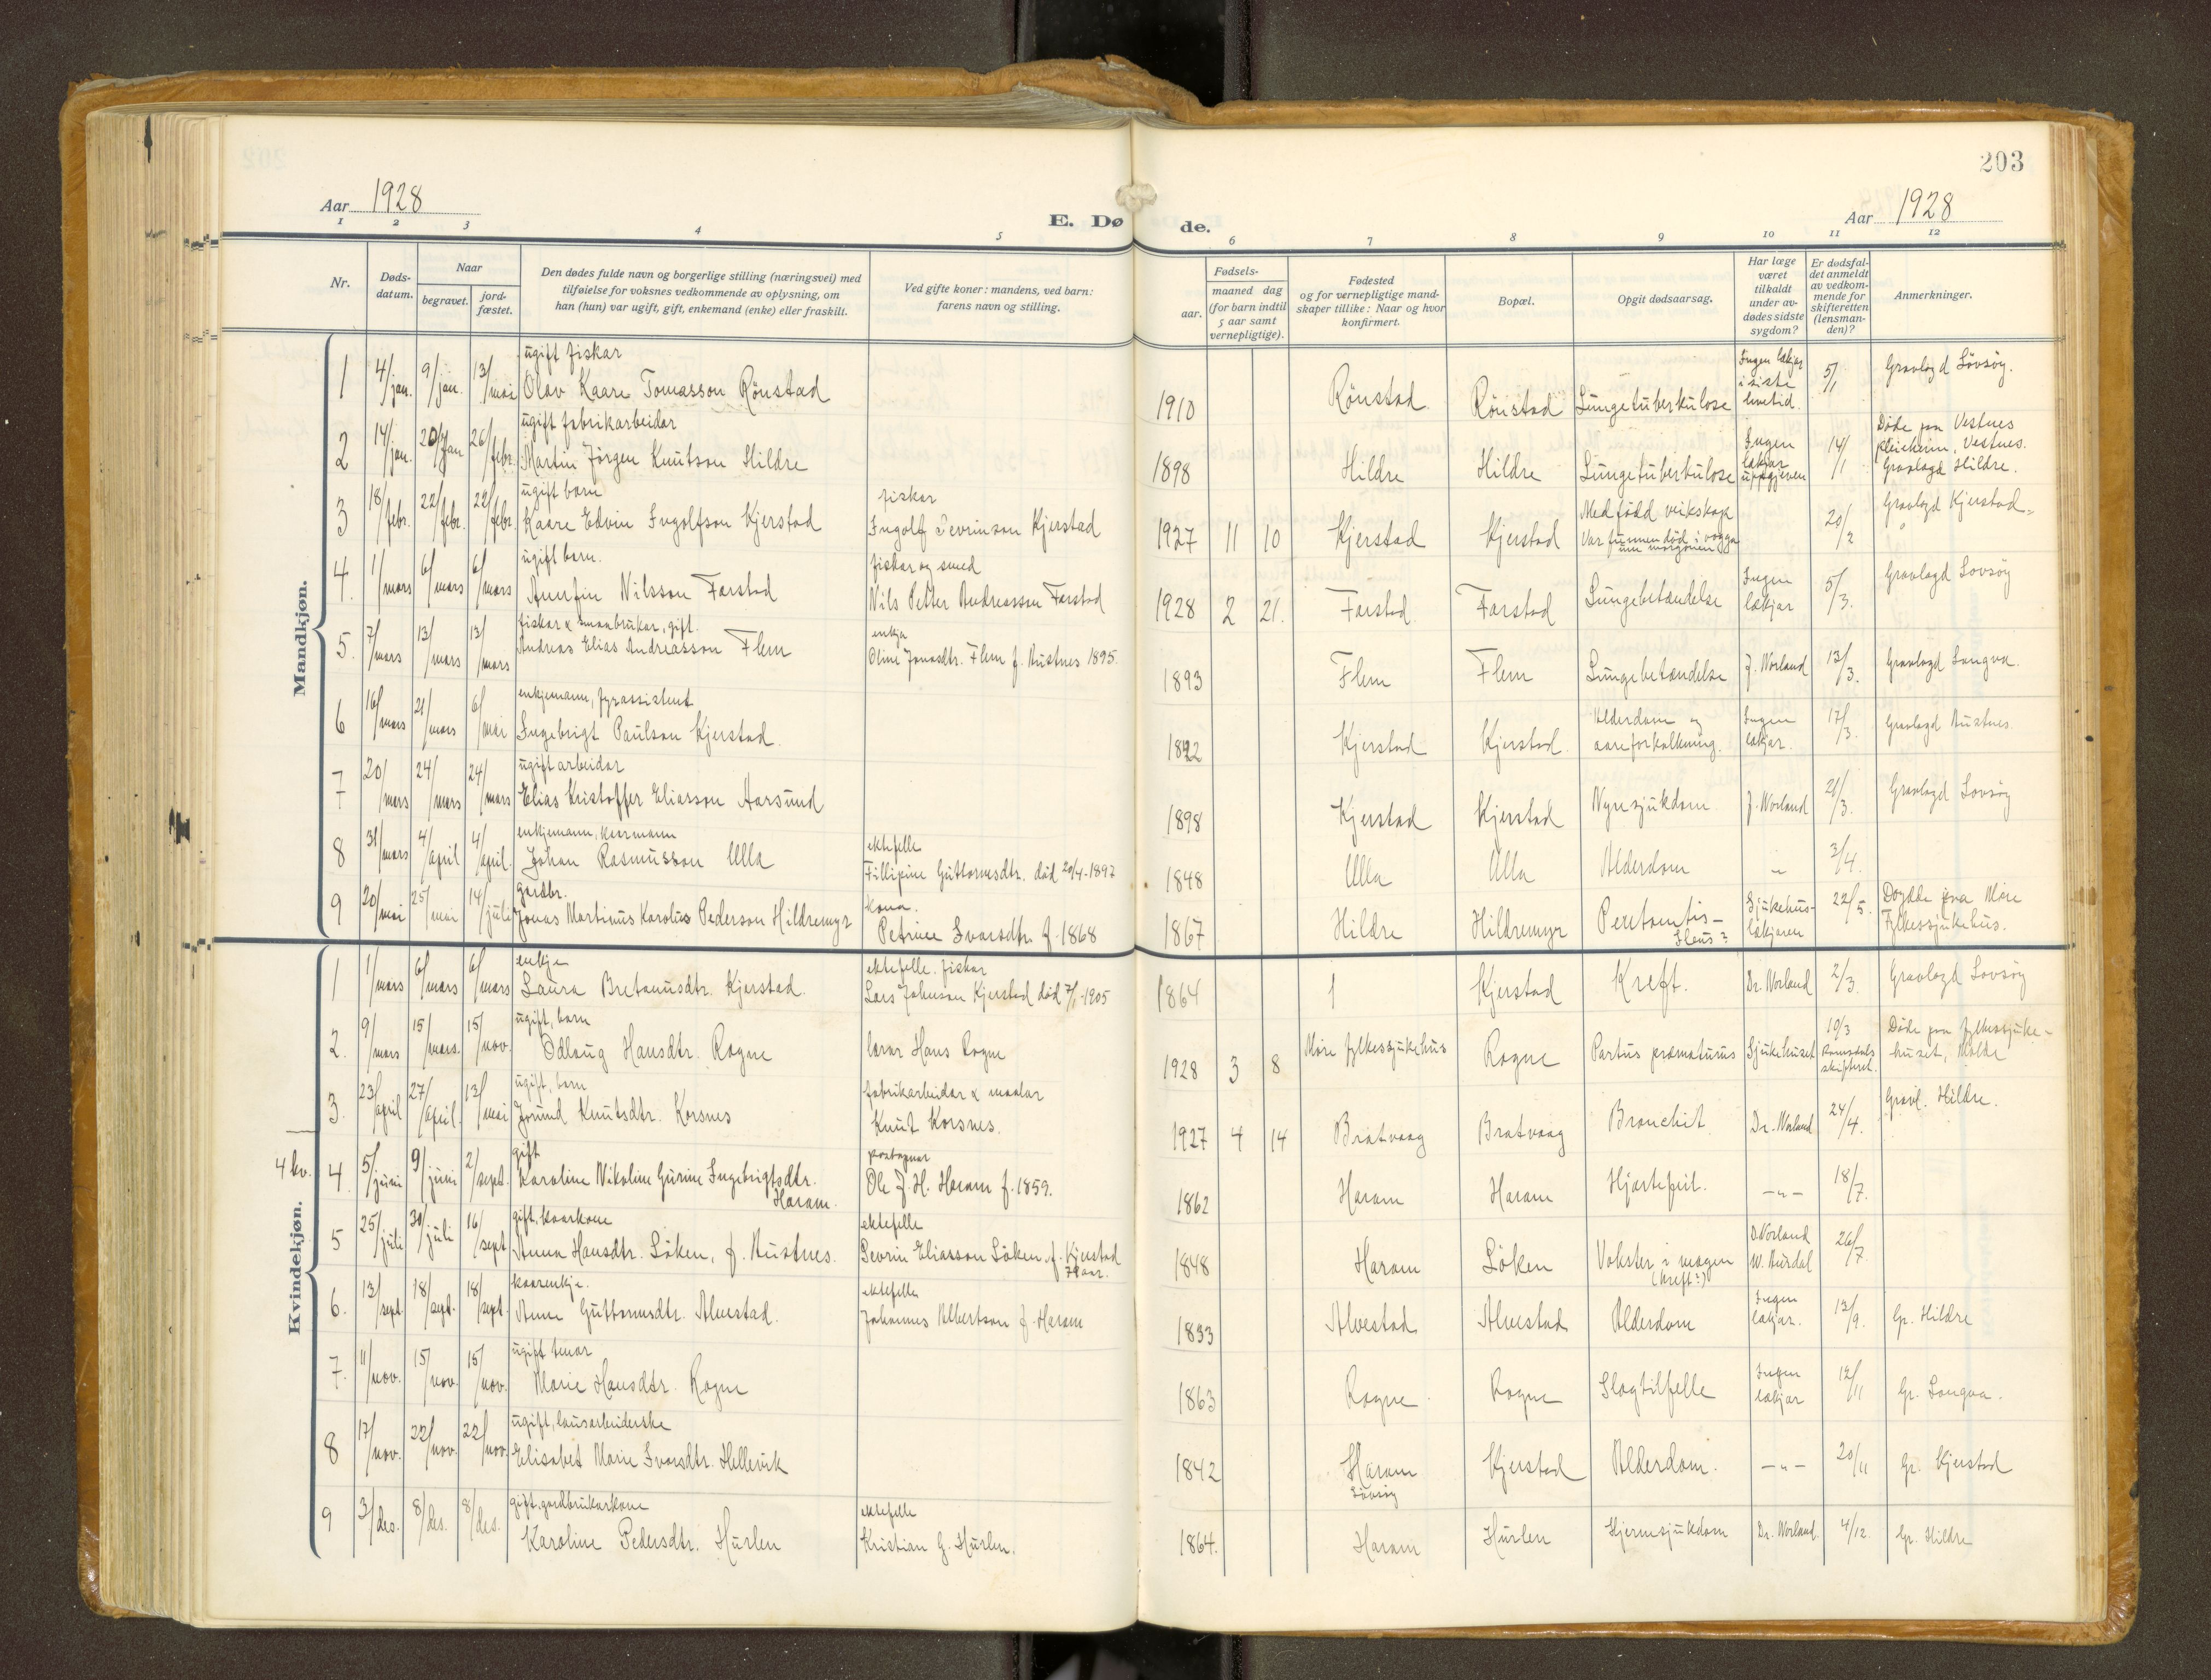 203
Aar 1928
E. Dø
de.
Aar 1928
1 2 3 4 5 6 7 8 9 10 11 12
Nr.
Døds-
datum.
Naar
begravet.
jord-
fæstet.
Den dødes fulde navn og borgerlige stilling (næringsvei) med
tilføielse for voksnes vedkommende av oplysning, om
han (hun) var ugift, gift, enkemand (enke) eller fraskilt.
Ved gifte koner: mandens, ved barn:
farens navn og stilling.
Fødsels-
aar.
maaned dag
(for barn indtil
5 aar samt
vernepligtige).
Fødested
og for vernepligtige mand-
skaper tillike: Naar og hvor
konfirmert.
Bopæl.
Opgit dødsaarsag.
Har læge
været
tilkaldt
under av-
dødes sidste
sygdom?
Er dødsfal-
det anmeldt
av vedkom-
mende for
skifteretten
(lensman-
den)?
Anmerkninger.
Mandkjøn.
1 4/jan. 9/jan. 13/mai ugift fiskar
Olav Kaare Tomasson Rönstad
1910 Rönstad Rönstad Lungetuberkulose Ingen lækjar
i siste
livetid. 5/1 Gravlagd Lövsöy.
2 14/jan. 20/jan 26/febr. ugift fabrikarbeidar
Martin Jörgen Knutson Hildre
1898 Hildre Hildre Lungetuberkulose Ingen
lækjar
uppgjeven 14/1 Döde paa Vestnes
Vestnes.
Gravlagd Hildre.
3 18/febr. 22/febr. 22/febr. ugift barn
Kaare Edvin Ingolfson Kjerstad
fiskar
Ingolf Sevrinson Kjerstad
1927 11 10 Kjerstad Kjerstad Medfödd veikskap
Var funnen död i vogga
um morgonen 20/2 Gravlagd Kjerstad
4. 1/mars 6/mars 6/mars ugift barn.
Arnfin Nilsson Farstad
fiskar og smed
Nils Petter Andreasson Farstad
1928 2 21. Farstad. Farstad Lungebetændelse Ingen
lækjar 5/3. Gravlagd Lövsöy
5. 7/mars 13/mars 13/mars fiskar & smaabrukar, gift.
Andreas Elias Andreasson Flem
enkja
Oline Jonasdtr. Flem f. Austnes 1895.
1893 Flem Flem Lungebetændelse J. Norland 13/3. Gravlagd Longva.
6 16/mars 21/mars 6/mai enkjemann, fyrassistent
Ingebrigt Paulson Kjerstad.
1842 Kjerstad Kjerstad. Alderdom og
aareforkalkning. Ingen
lækjar. 17/3. Gravlagd Austnes.
7 20/mars 24/mars 24/mars ugift arbeidar
Elias Kristoffer Eliasson Aarsund
1898 Kjerstad Kjerstad Nyresjukdom. J. Norland 21/3. Gravlagd Lovsöy
8 31/mars 4/april 4/april. enkjemann, kaarmann
Johan Rasmusson Ulla
ektefelle
Fillipine Guttormsdtr. död 20/4-1897
1848 Ulla Ulla Alderdom " 3/4.
9 20/mai 25/mai 14/juli gardbr.
Jonas Martinus Karolus Pederson Hildremyr
kona.
Petrine Ivarsdtr. f. 1868
1867 Hildre Hildremyr Ileus? Sjukehus-
lækjaren 22/5. Döydde paa Möre
Fylkessjukehus.
Kvindekjøn.
1 1/mars 6/mars 6/mars enkje
Laura Bretanusdtr. Kjerstad.
ektefelle. fiskar
Lars Johnson Kjerstad död 7/1-1905
1864 1 Kjerstad Kreft. Dr. Norland 2/3. Gravlagd Lovsöy
2. 9/mars 15/mars. 15/nov. ugift, barn
Odlaug Hansdtr. Rogne
lærar Hans Rogne
1928 3 8 Möre fylkessjukehus Rogne Partus præmaturus Sjukehuset 10/3
Romsdals
skifterett. Döde paa fylkessjuke-
huset, Molde
3. 23/april 27/april. 13/mai ugift, barn
Jorund Knutsdtr. Korsnes
fabrikarbeidar & maalar
Knut Korsnes.
1927 4 14 Bratvaag Bratvaag Bronchit. Dr. Norland 24/4. Gravl. Hildre.
4 kv. 4. 5/juni 9/juni 2/sept. gift
Karoline Nikoline Gurine Ingebrigtsdtr.
Haram.
postopnar
Ole J. H. Haram f. 1859.
1862 Haram Haram Hjartefeil. -"- 18/7.
5 25/juli 30/juli 16/sept gift, kaarkone
Anna Hansdtr. Löken, f. Austnes.
ektefelle
Sevrin Eliasson Löken f. Kjerstad
79 aar.
1848 Haram Löken Vokster i magen
(kreft?) D. Norland
W. Aursdal 26/7.
6. 13/sept. 18/sept. 18/sept. kaarenkje.
Anne Guttormsdtr. Alvestad.
ektefelle
Johannes Albertson f. Haram
1833 Alvestad Alvestad Alderdom Ingen
lækjar. 13/9. Gr. Hildre
7. 11/nov. 15/nov. 15/nov. ugift tenar
Marie Hansdtr. Rogne
1863 Rogne. Rogne Slagtilfelle Ingen
lækjar 12/11 Gr. Longva.
8 17/nov. 22/nov. 22/nov. ugift, lausarbeiderske
Elisabet Marie Ivarsdtr. Hellevik
1842 Haram
Lövsöy Kjerstad Alderdom. -"- 20/11 Gr. Kjerstad
9 3/des. 8/des. 8/des. gift, gardbrukarkone
Karoline Pedersdtr. Hurlen
ektefelle
Kristian G. Hurlen.
1864. Haram Hurlen Hjernesjukdom Dr. Norland. 4/12. Gr. Hildre